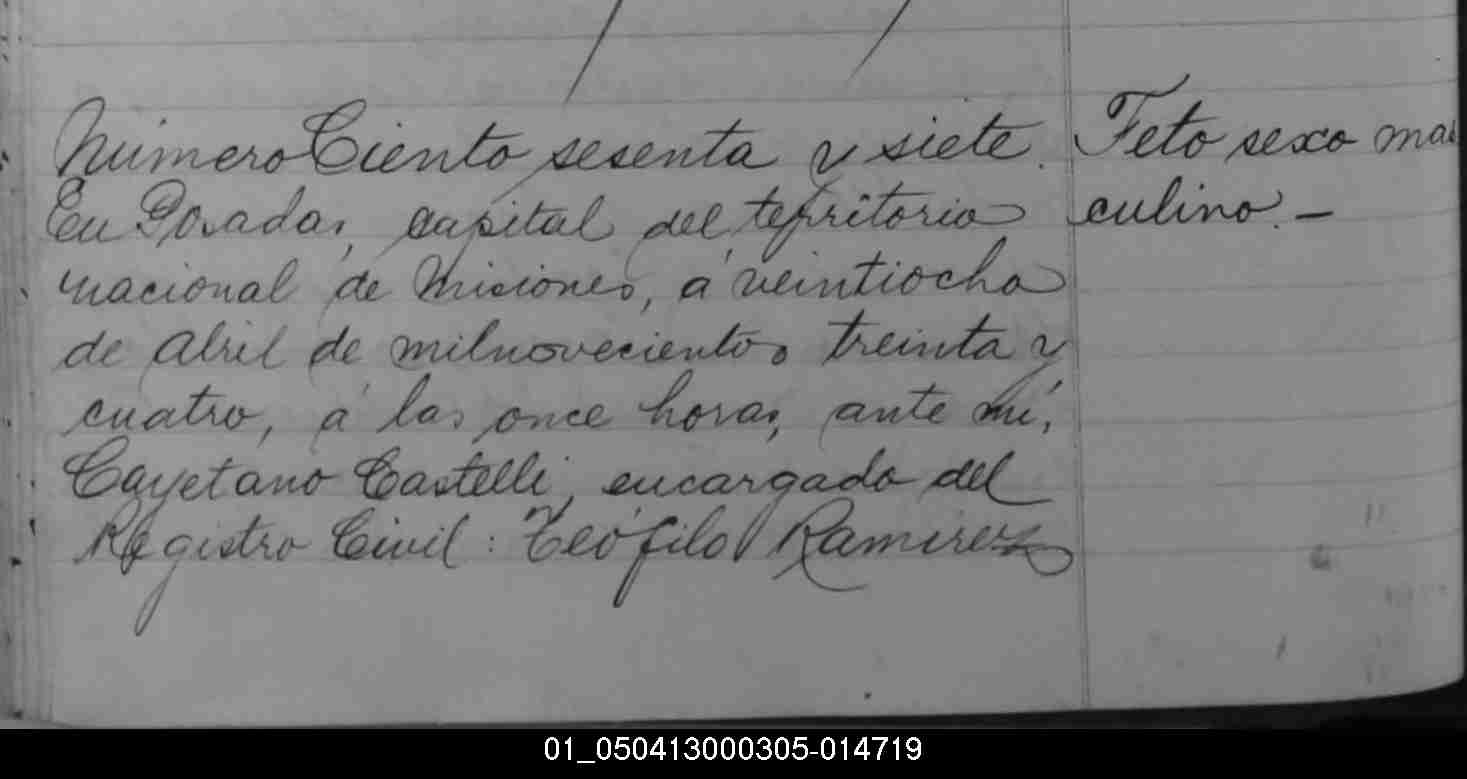 Número Ciento sesenta y siete.
En Posadas, capital del territorio
nacional de Misiones, á veintiocho
de Abril de milnovecientos treinta y
cuatro, á las once horas, ante mí,
Cayetano Castelli, encargado del
Registro Civil: Teófilo Ramirez
Feto sexo mas
culino. —
01_050413000305-014719